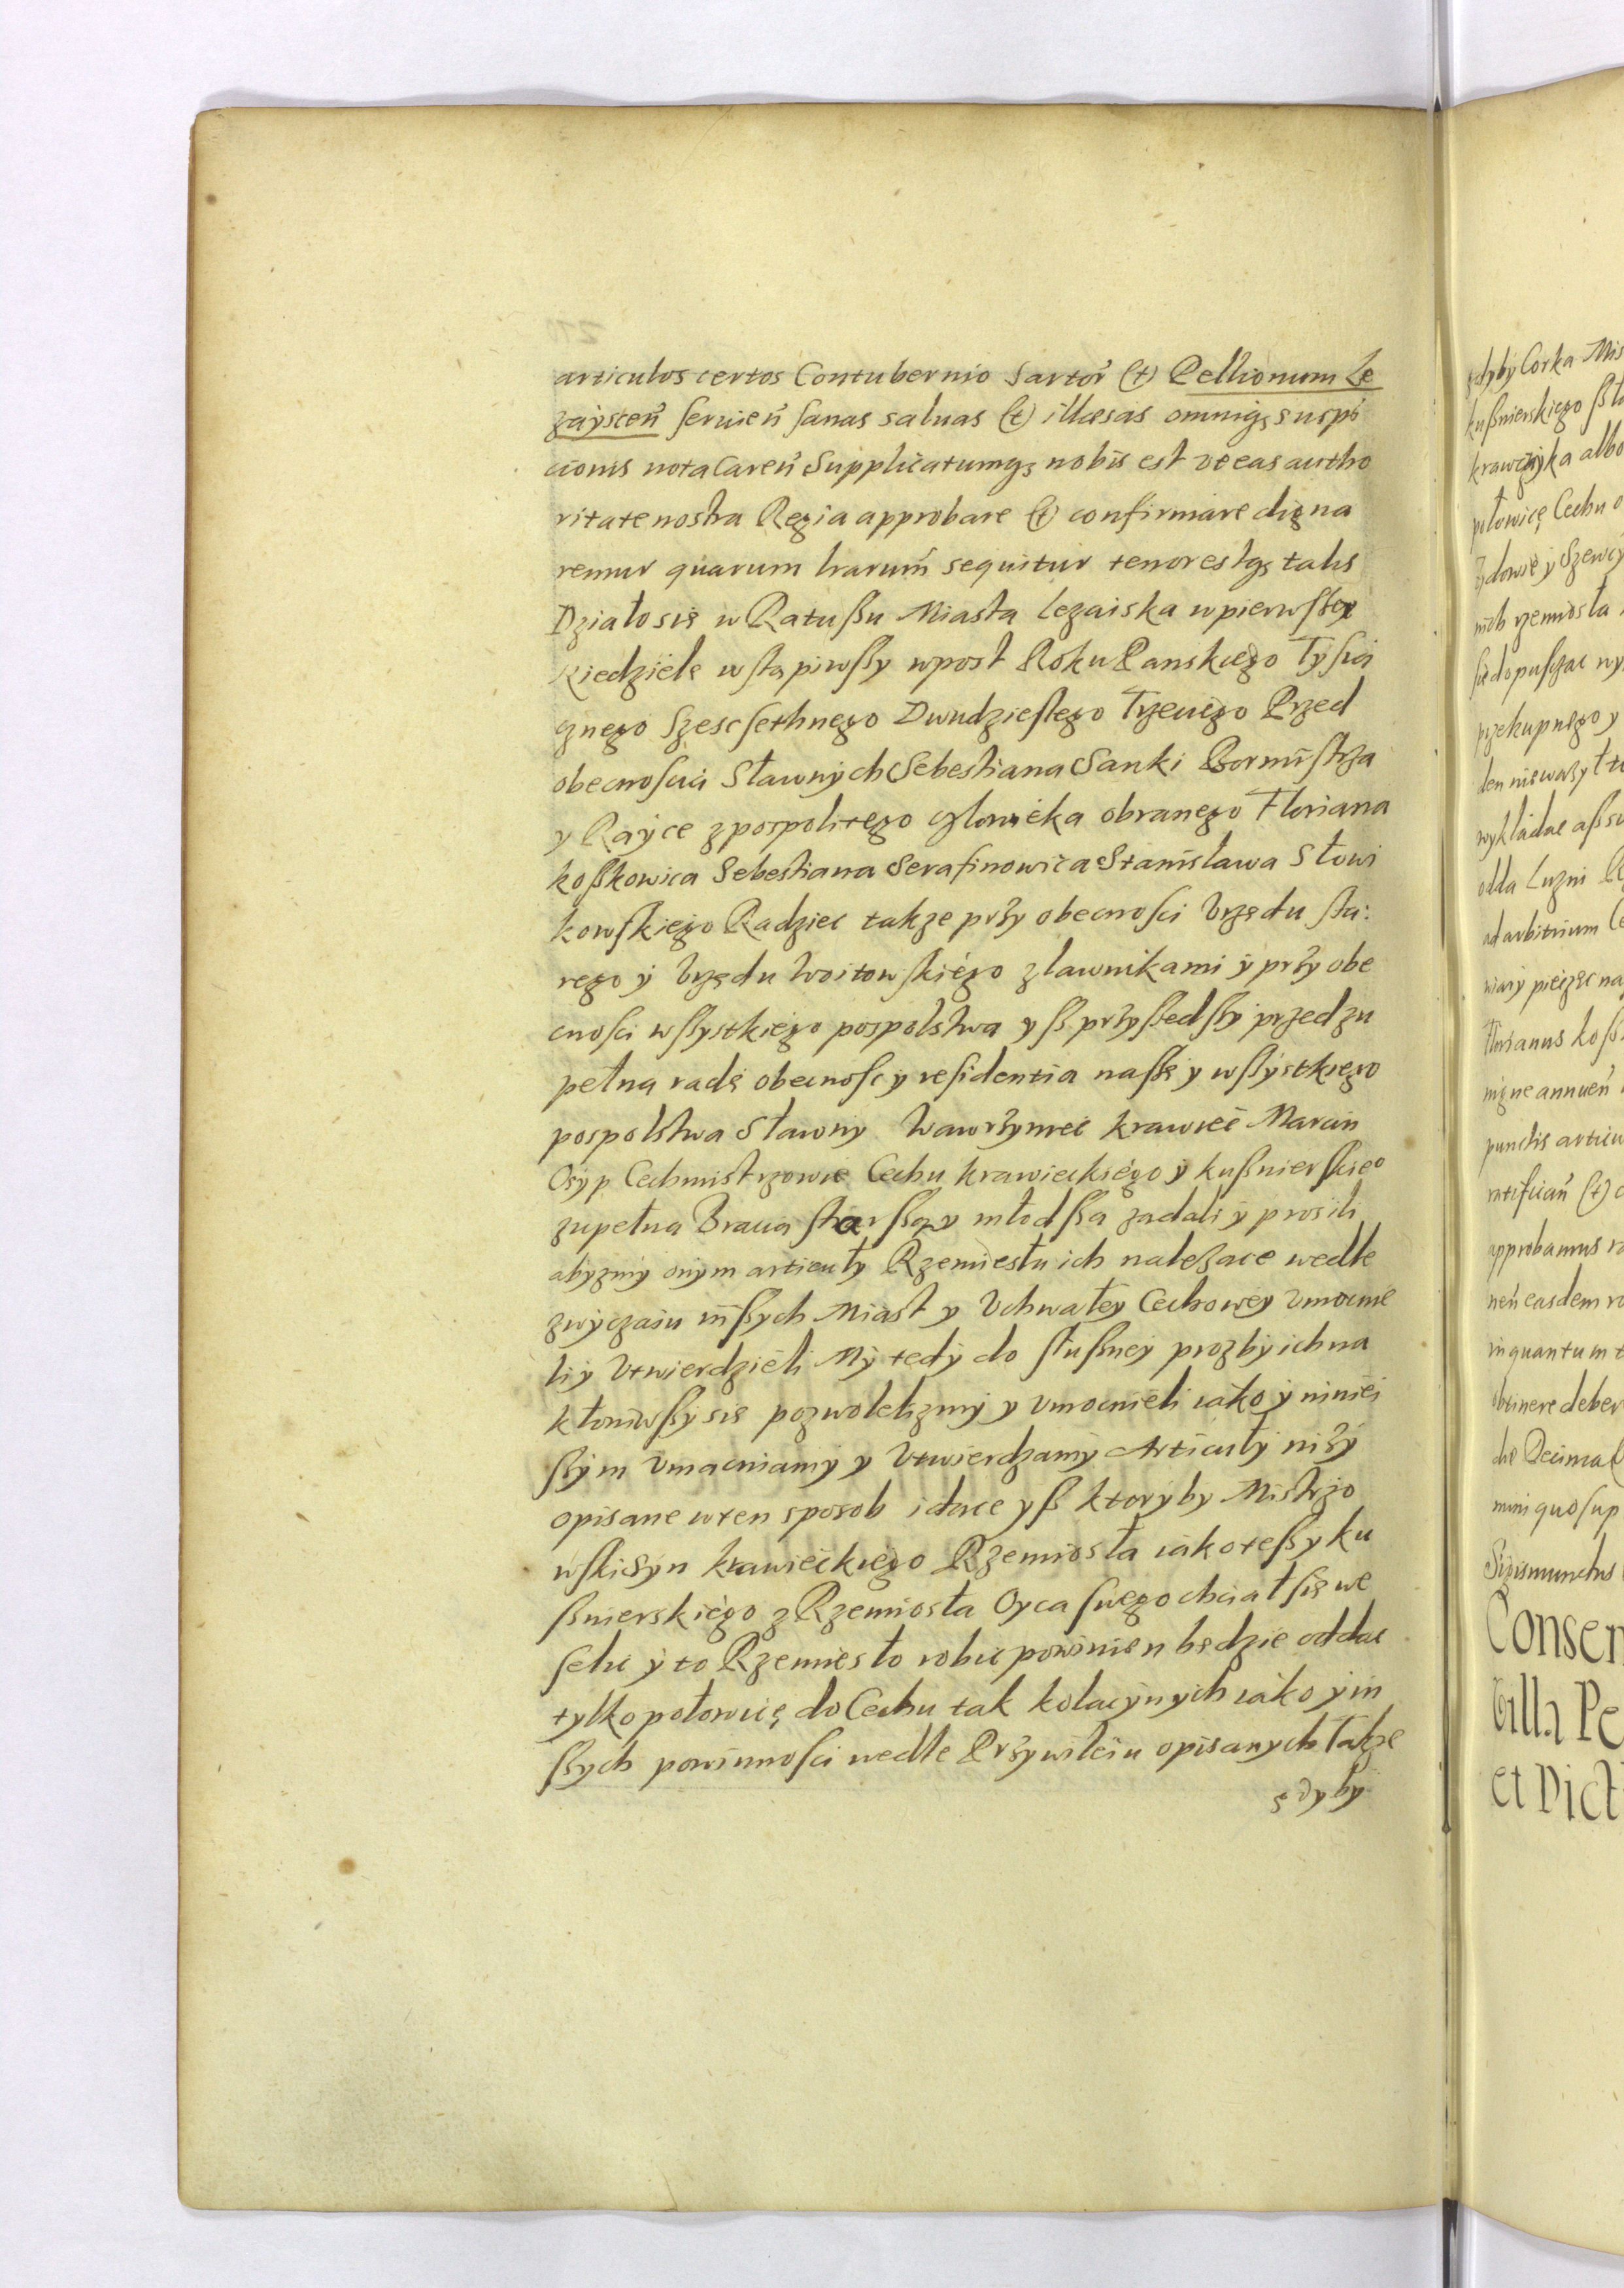 articulos certos Contubernio Sartor̃ (t) Pellionum Le
zaÿscen̄ seruien̄ sanas saluas (t) illæsas omniqꝫ suspi
cionis nota Caren̄ Supplicatumqꝫ nobis est vt eas autho
ritate nostra Regia approbare (t) confirmare digna
remur quarum lrarum̄ sequitur tenor estqꝫ talis
Działo się w Ratußu Miasta Lezaiska w pierwßą
Niedzielę wstąpiwßy w post Roku Panskiego Tysią
cznego Szescsethnego Dwudziestego Trzeciego Przed
obecnoscią Sławnych Sebestiana Sanki Bormistrza
y Raÿce z pospolitego człowieka obranego Floriana
Koßkowica Sebestiana Serafinowica Stanisława Słowi
kowskiego Radziec takze przy obecnosci Vrzędu sta:
rego ÿ Vrzędu Woitowskiégo z ławnikami ÿ przy obe
cnosci wßystkiégo pospolstwa yß przyßedßy przed zu
pełną radę obecnosc ÿ residentia naßę y wßÿstkiego
pospolstwa Sławny Wawrzyniec Krawiec Marcin
Osyp Cechmistrzowie Cechu Krawieckiégo ÿ Kußnierskieo
zupełna Bracia starßa y młodßa zadali ÿ prosili
abyzmy onym articuły Rzemiesłu ich nalezące wedle
zwyczaiu inßych Miast y Vchwałey Cechowey Vmocnie
li ÿ Vtwierdzieli Mÿ tedÿ do słußneÿ prozbÿ ich na
kłoniwßÿ się pozwolelizmÿ y Vmocnieli iako ÿ niniei
ßÿm Vmacniamÿ y Vtwierdzamÿ Articułÿ nizÿ
opisane w ten sposob idące yß ktorÿby Mistrzo
wski Syn Krawieckiego Rzemiosła iako teß y ku
ßnierskiégo z Rzemiosła Oyca swego chciał się we
selic ÿ to Rzemiesło robic powinien będzie oddac
tylko połowicę do Cechu tak kolacÿnych iako ÿ in
ßych powinnosci wedle Przywileiu opisanych Takze
gdyby